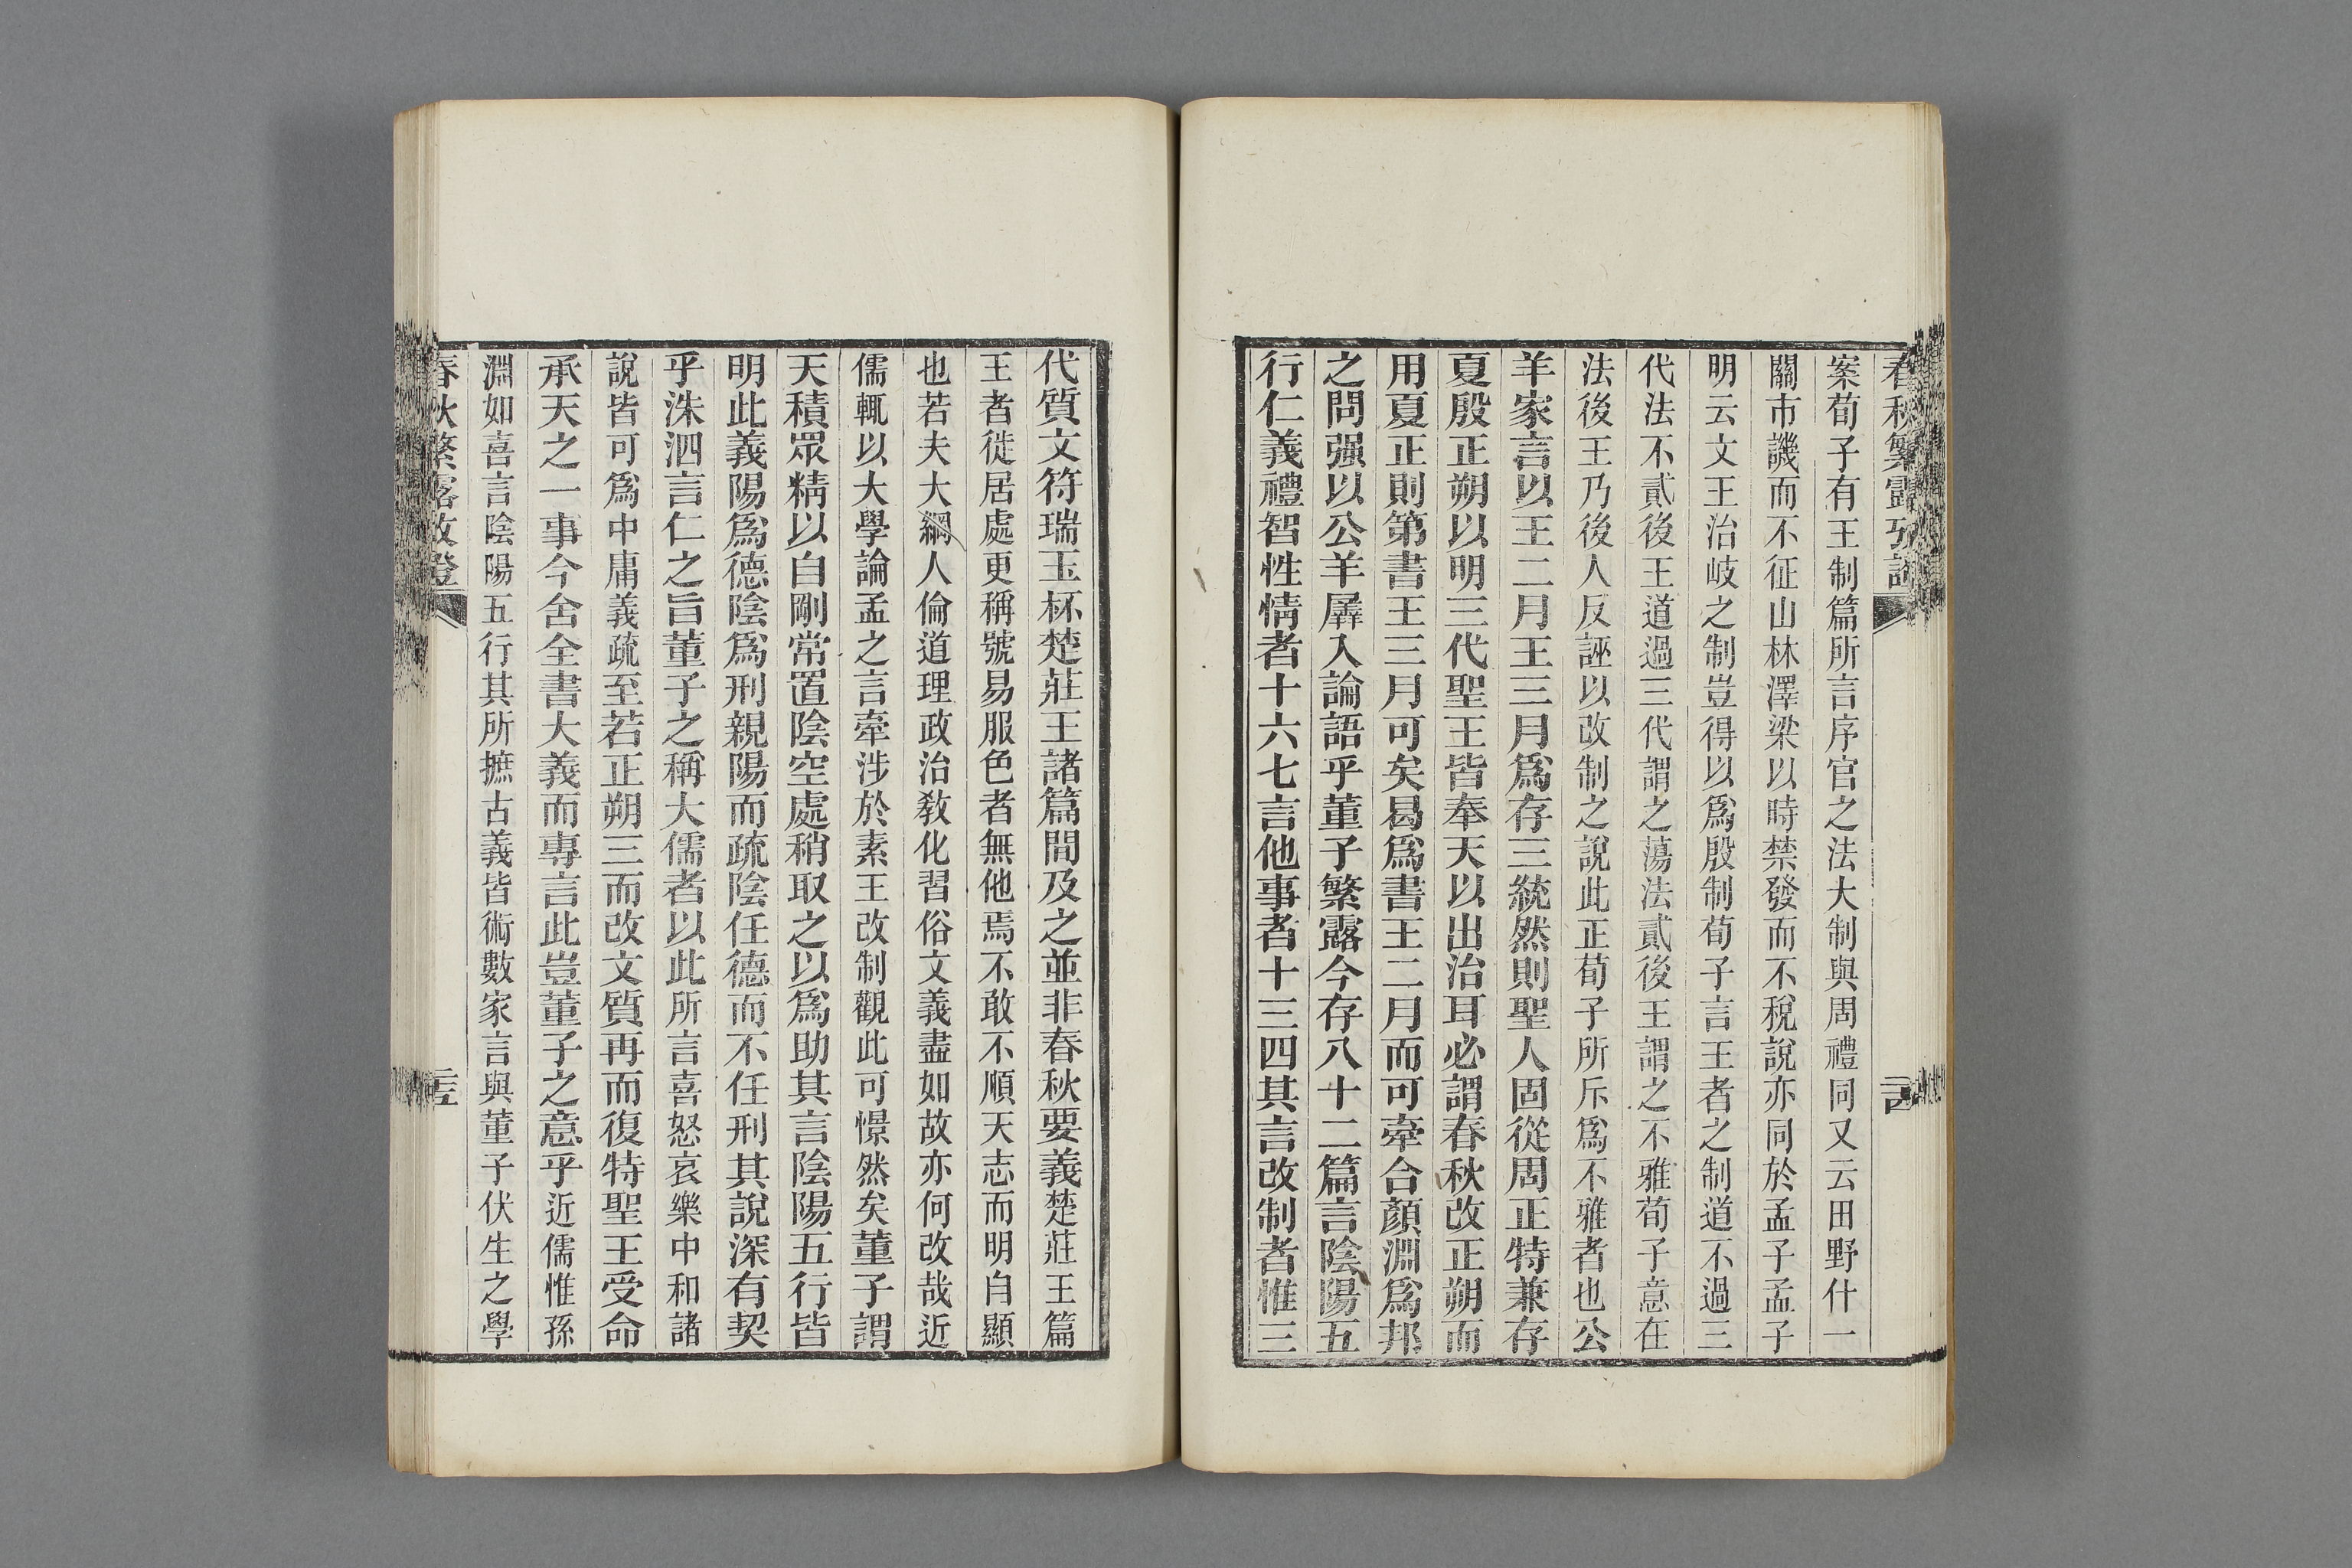 春秋繁露攷證
案荀子有王制篇所言序官之法大制與周禮同又云田野什一
關市譏而不征山林澤梁以時禁發而不稅說亦同於孟子孟子
明云文王治岐之制豈得以爲殷制荀子言王者之制道不過三
代法不貳後王道過三代謂之蕩法貳後王謂之不雅荀子意在
法後王乃後人反誣以改制之說此正荀子所斥爲不雅者也公
羊家言以王二月王三月爲存三統然則聖人固從周正特兼存
夏殷正朔以明三代聖王皆奉天以出治耳必謂春秋改正朔而
用夏正則第書王三月可矣曷爲書王二月而可牽合顏淵爲邦
之問强以公羊羼入論語乎董子繁露今存八十二篇言陰陽五
行仁義禮智性情者十六七言他事者十三四其言改制者惟三
代質文符瑞玉杯楚莊王諸篇間及之並非春秋要義楚莊王篇
王者徙居處更稱號易服色者無他焉不敢不順天志而明自顯
也若夫大綱人倫道理政治教化習俗文義盡如故亦何改哉近
儒輒以大學論孟之言牽涉於素王改制觀此可憬然矣董子謂
天積眾精以自剛常置陰空處稍取之以爲助其言陰陽五行皆
明此義陽爲德陰爲刑親陽而疏陰任德而不任刑其說深有契
乎洙泗言仁之旨董子之稱大儒者以此所言喜怒哀樂中和諸
說皆可爲中庸義疏至若正朔三而改文質再而復特聖王受命
承天之一事今舍全書大義而專言此豈董子之意乎近儒惟孫
淵如喜言陰陽五行其所摭古義皆術數家言與董子伏生之學
春秋繁露攷證